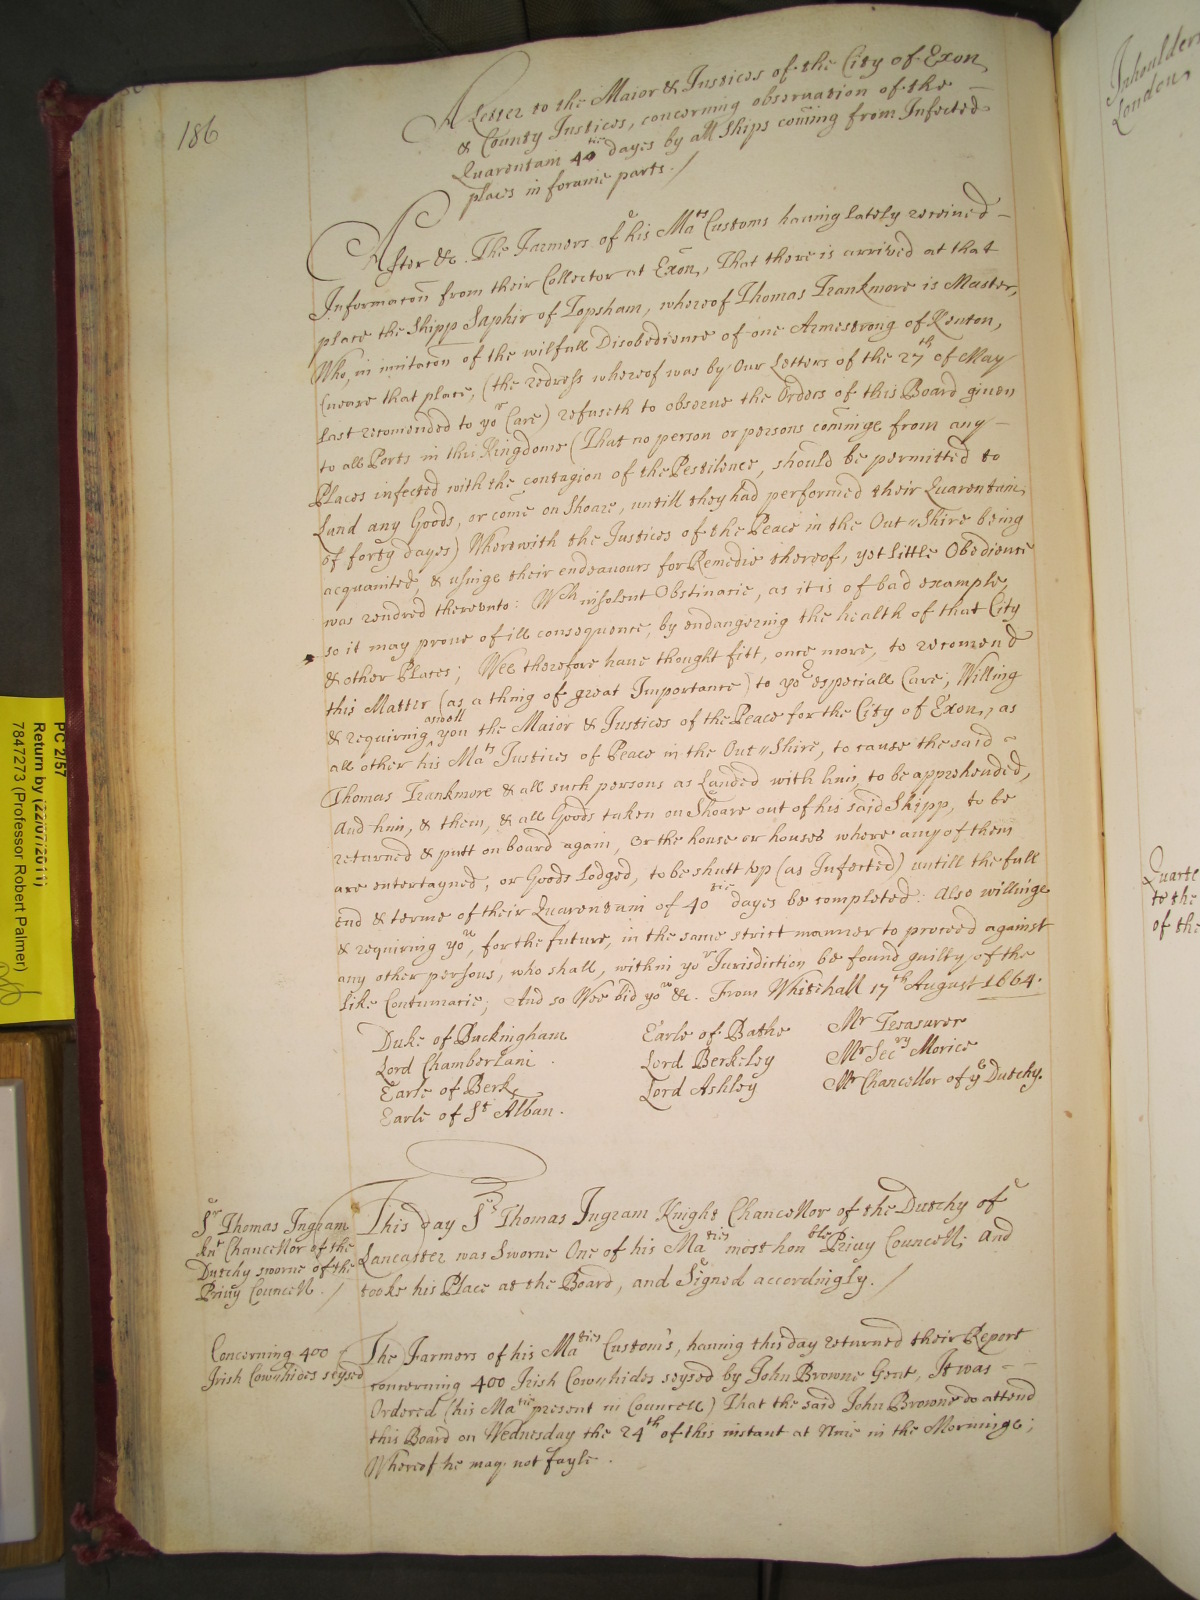 186
A Letter to the Maior & Justices of the City of Exon,
& County Justices, concerning observation of the
Quarentain 40tie dayes by all Ships com̄ing from Infected
places in forunie parts. /
After &c. The Farmers of his Mats Customs having lately received
Informac̄on from their Collector at Exon, That there is arrived at that
place the Shipp Saphir of Topsham, whereof Thomas Frankmore is Master,
Who, in imitac̄on of the wilfull Disobedience of one Armestrong of Kenton,
(neare that place, (the redress whereof was by Our Letters of the 27th of May
last recomended to yor Care) refuseth to observe the Orders of this Board given
to all Ports in this Kingdome (That no person or persons com̄inge from any
Places infected with the contagion of the Pestilence, should be permitted to
Land any Goods, or come on Shoare, untill they had performed their Quarentain
of forty dayes) Wherewith the Justices of the Peace in the Out-Shire being
acquainted, & usinge their endeavours for Remedie thereof, yet little Obedience
was rendred thereunto: Wch insolent Obstinacie, as it is of bad example,
so it may prove of ill consequence, by endangering the health of that City
& other Places; Wee therefore have thought fitt, once more, to recomend
this Matter (as a thing of great Importance) to yor especiall Care, Willing
& requiring aswell you the Maior & Justices of the Peace for the City of Exon, as
all other his Mats Justices of Peace in the Out-Shire, to cause the said
Thomas Frankmore & all such persons as Landed with him, to be apprehended,
And him, & them, & all Goods taken on Shoare out of his said Shipp, to be
returned & putt on board again, Or the house or houses where any of them
are entertayned, or Goods Lodged, to be shutt up (as Infected) untill the full
end & terme of their Quarentain of 40tie dayes be completed: Also willinge
& requiring you, for the future, in the same strict manner to proceed against
any other persons, who shall, within yor Jurisdiction be found guilty of the
like Contumacie; And so Wee bid you &c. From Whitehall 17th August 1664.
Duke of Buckingham
Lord Chamberlain
Earle of Berk,
Earle of St Alban.
Earle of Bathe
Lord Berkeley
Lord Ashley
Mr Treasurer
Mr Secry Morice
Mr Chancellor of ye Dutchy.
Sr Thomas Ingram
Knt Chancellor of the
Dutchy sworne of the
Privy Councell. /
This day Sr Thomas Ingram Knight Chancellor of the Dutchy of
Lancaster was Sworne One of his Maties most honble Privy Councell; And
tooke his Place at the Board, and Signed accordingly. /
Concerning 400
Irish Cow-hides seysed
The Farmers of his Maties Custom's, having this day returned their Report
concerning 400 Irish Cow-hides seysed by John Browne Gent, It was
Ordered (his Matie present in Councell) That the said John Browne do attend
this Board on Wednesday the 24th of this instant at Nine in the Morninge;
Whereof he may not fayle.
Inholders
London
Quarte
to the
of the
PC 2/57
Return by (22/07/2011)
7847273 (Professor Robert Palmer)